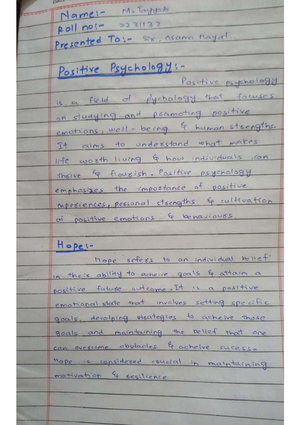 Name:- M. Tayyab
Roll no:-
Presented To:- Sir. Osama Hayat
Positive Psychology:-
Positive psychology
is a field of Pychology that focuses
on studying and promoting positive
emotions, well-being & human strengths.
It aims to understand what makes
life worth living & how individuals can
thrive & flourish. Positive psychology
emphasizes the importance of positive
experiences, personal strengths & cultivation
of positive emotions & behaviours.
Hope:-
Hope refers to an individual belief
in their ability to acheive goals & attain a
positive future outcome. It is a positive
emotional state that involves setting specific
goals, devolping strategies to acheive those
goals and maintaining the belief that one
can overcome obstacles & acheive sucess.
Hope is considered crucial in maintaining
motivation & resilience.